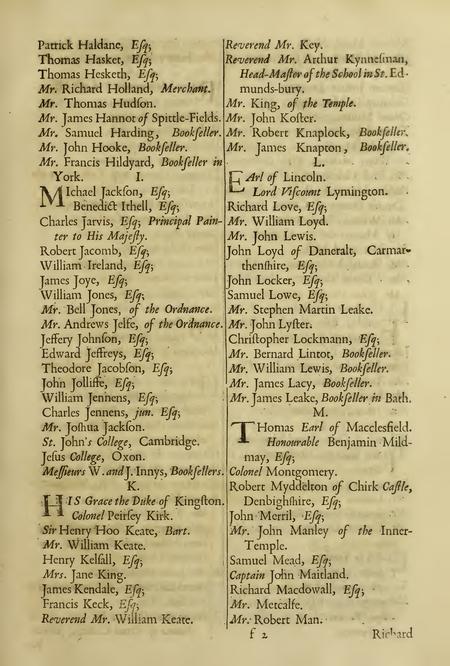 Patrick Haldane, Eſq;
Thomas Hasket, Eſq;
Thomas Hesketh, Eſq;
Mr. Richard Holland, Merchant.
Mr. Thomas Hudſon.
Mr. James Hannot of Spittle-Fields.
Mr. Samuel Harding, Bookſeller.
Mr. John Hooke, Bookſeller.
Mr. Francis Hildyard, Bookſeller in
York. I.
MIchael Jackſon, Eſq;
Benedict Ithell, Eſq;
Charles Jarvis, Eſq; Principal Pain-
ter to His Majeſty.
Robert Jacomb, Eſq;
William Ireland, Eſq;
James Joye, Eſq;
William Jones, Eſq;
Mr. Bell Jones, of the Ordnance.
Mr. Andrews Jelfe, of the Ordnance.
Jeffery Johnſon, Eſq;
Edward Jeffreys, Eſq;
Theodore Jacobſon, Eſq;
John Jolliffe, Eſq;
William Jennens, Eſq;
Charles Jennens, jun. Eſq;
Mr. Joſhua Jackſon.
St. John's College, Cambridge.
Jeſus College, Oxon.
Meſſieurs W. and J. Innys, Bookſellers.
K.
HIS Grace the Duke of Kingſton.
Colonel Peirſey Kirk.
Sir Henry Hoo Keate, Bart.
Mr. William Keate.
Henry Kelſall, Eſq;
Mrs. Jane King.
James Kendale, Eſq;
Francis Keck, Eſq;
Reverend Mr. William Keate.
Reverend Mr. Key.
Reverend Mr. Arthur Kynneſman,
Head-Maſter of the School in St. Ed-
munds-bury.
Mr. King, of the Temple.
Mr. John Koſter.
Mr. Robert Knaplock, Bookſeller.
Mr. James Knapton, Bookſeller.
L.
EArl of Lincoln.
Lord Viſcount Lymington.
Richard Love, Eſq;
Mr. William Loyd.
Mr. John Lewis.
John Loyd of Daneralt, Carmar-
thenſhire, Eſq;
John Locker, Eſq;
Samuel Lowe, Eſq;
Mr. Stephen Martin Leake.
Mr. John Lyſter.
Chriſtopher Lockmann, Eſq;
Mr. Bernard Lintot, Bookſeller.
Mr. William Lewis, Bookſeller.
Mr. James Lacy, Bookſeller.
Mr. James Leake, Bookſeller in Bath.
M.
THomas Earl of Macclesfield.
Honourable Benjamin Mild-
may, Eſq;
Colonel Montgomery.
Robert Myddelton of Chirk Caſtle,
Denbighſhire, Eſq;
John Merril, Eſq;
Mr. John Manley of the Inner-
Temple.
Samuel Mead, Eſq;
Captain John Maitland.
Richard Macdowall, Eſq;
Mr. Metcalfe.
Mr. Robert Man.
f 2 Richard